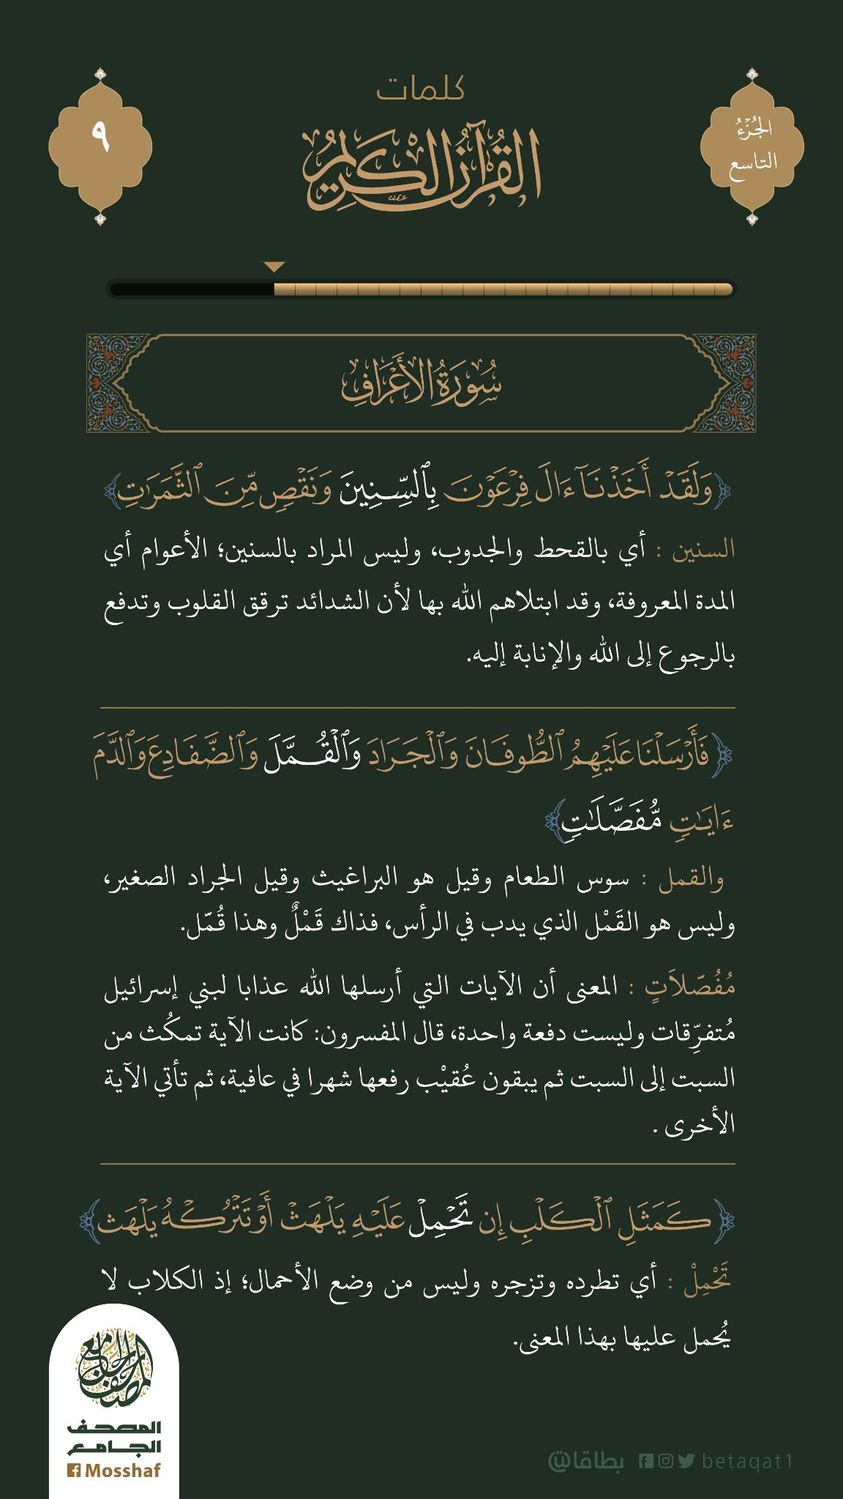 كلمات
القرآن الكريم
الجُزْءُ
التاسع
٩
سُورَةُ الأَعْرَافِ
﴿وَلَقَدْ أَخَذْنَآ ءَالَ فِرْعَوْنَ بِٱلسِّنِينَ وَنَقْصٍ مِّنَ ٱلثَّمَرَٰتِ﴾
السنين : أي بالقحط والجدوب، وليس المراد بالسنين؛ الأعوام أي
المدة المعروفة، وقد ابتلاهم الله بها لأن الشدائد ترقق القلوب وتدفع
بالرجوع إلى الله والإنابة إليه.
﴿فَأَرْسَلْنَا عَلَيْهِمُ ٱلطُّوفَانَ وَٱلْجَرَادَ وَٱلْقُمَّلَ وَٱلضَّفَادِعَ وَٱلدَّمَ
ءَايَٰتٍ مُّفَصَّلَٰتٍ﴾
والقمل : سوس الطعام وقيل هو البراغيث وقيل الجراد الصغير،
وليس هو القَمْل الذي يدب في الرأس، فذاك قَمْلٌ وهذا قُمّل.
مُفُصّلاَتٍ : المعنى أن الآيات التي أرسلها الله عذابا لبني إسرائيل
مُتفرِّقات وليست دفعة واحدة، قال المفسرون: كانت الآية تمكُث من
السبت إلى السبت ثم يبقون عُقيْب رفعها شهرا في عافية، ثم تأتي الآية
الأخرى .
﴿كَمَثَلِ ٱلْكَلْبِ إِن تَحْمِلْ عَلَيْهِ يَلْهَثْ أَوْ تَتْرُكْهُ يَلْهَث﴾
تَحْمِلْ : أي تطرده وتزجره وليس من وضع الأحمال؛ إذ الكلاب لا
يُحمل عليها بهذا المعنى.
المصحف الجامع
المصحف
الجامع
Mosshaf
بطاقا@ betaqat1